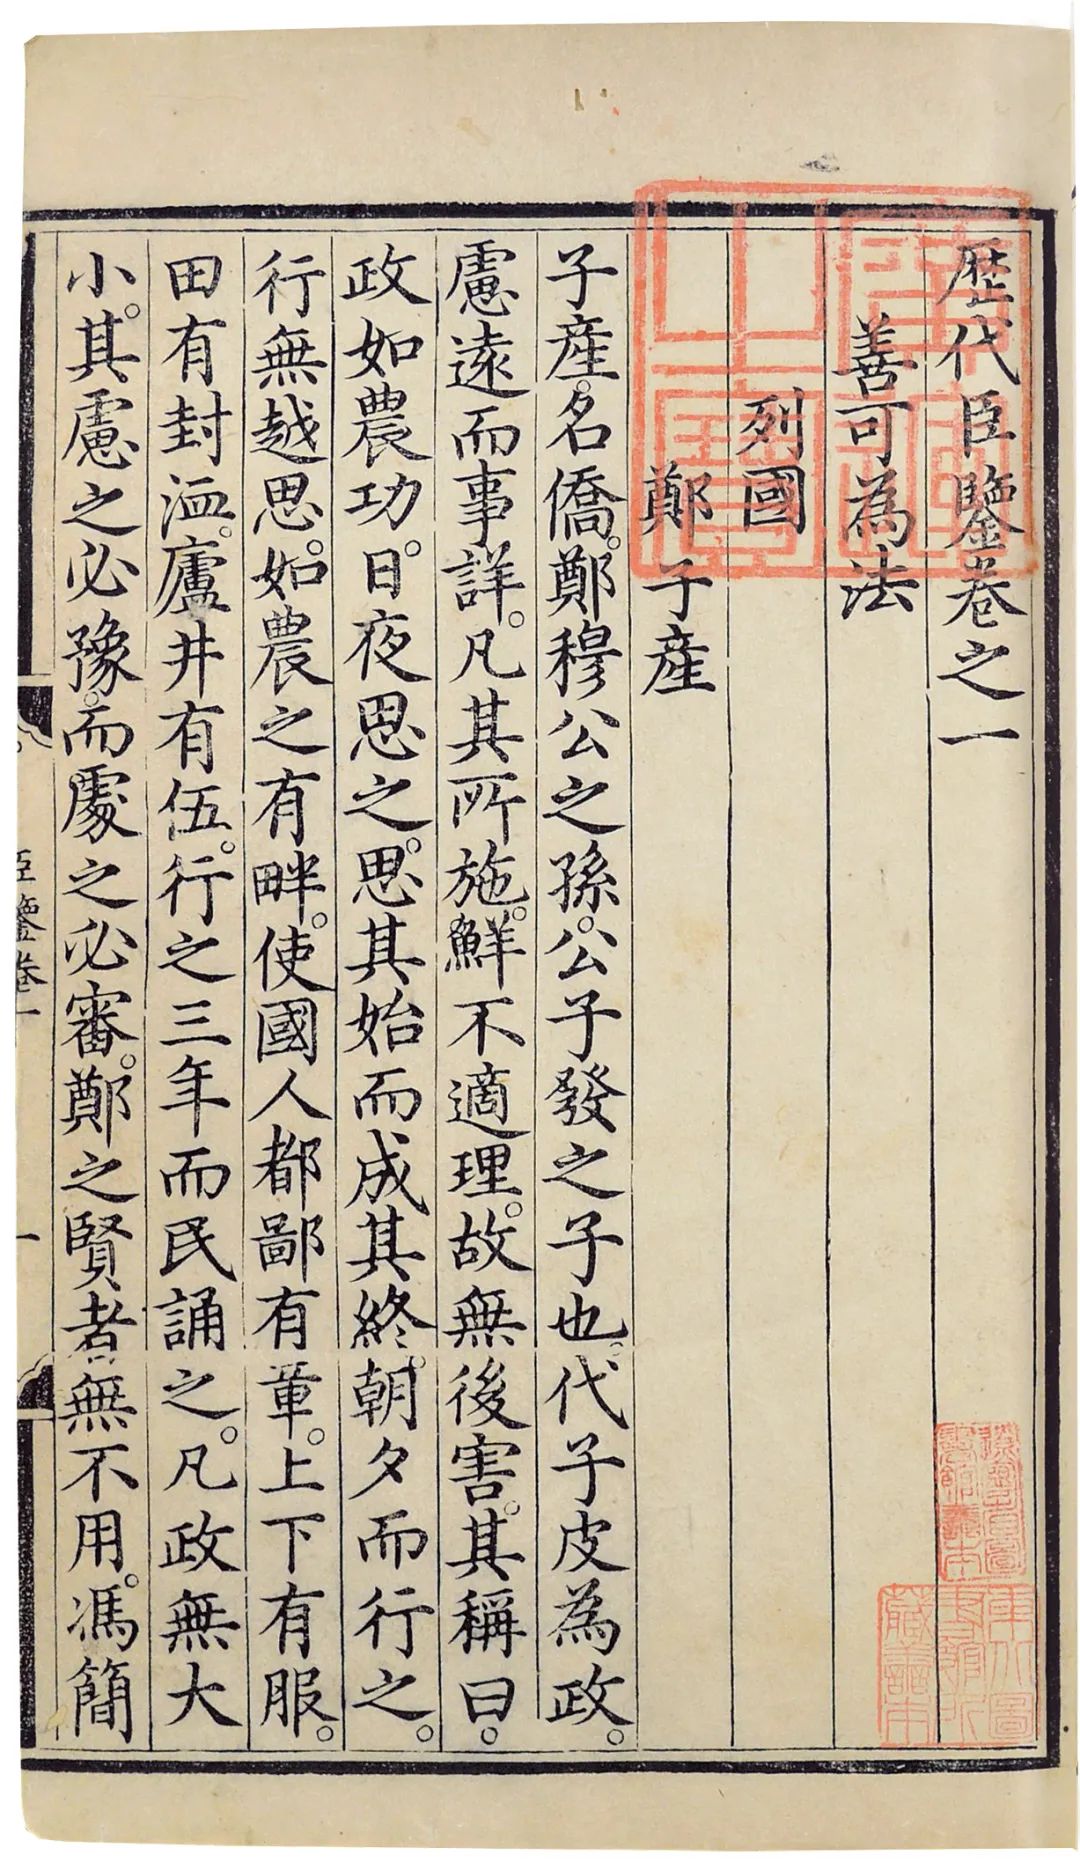 歷代臣鑒卷之一
善可為法
列國
鄭 子產
子產。名僑。鄭穆公之孫。公子發之子也。代子皮為政。
慮遠而事詳。凡其所施。鮮不適理。故無後害。其稱曰。
政如農功。日夜思之。思其始而成其終。朝夕而行之。
行無越思。如農之有畔。使國人都鄙有章。上下有服。
田有封洫。廬井有伍。行之三年而民誦之。凡政無大
小。其慮之必豫。而處之必審。鄭之賢者無不用。馮簡
臣鑒卷一
一